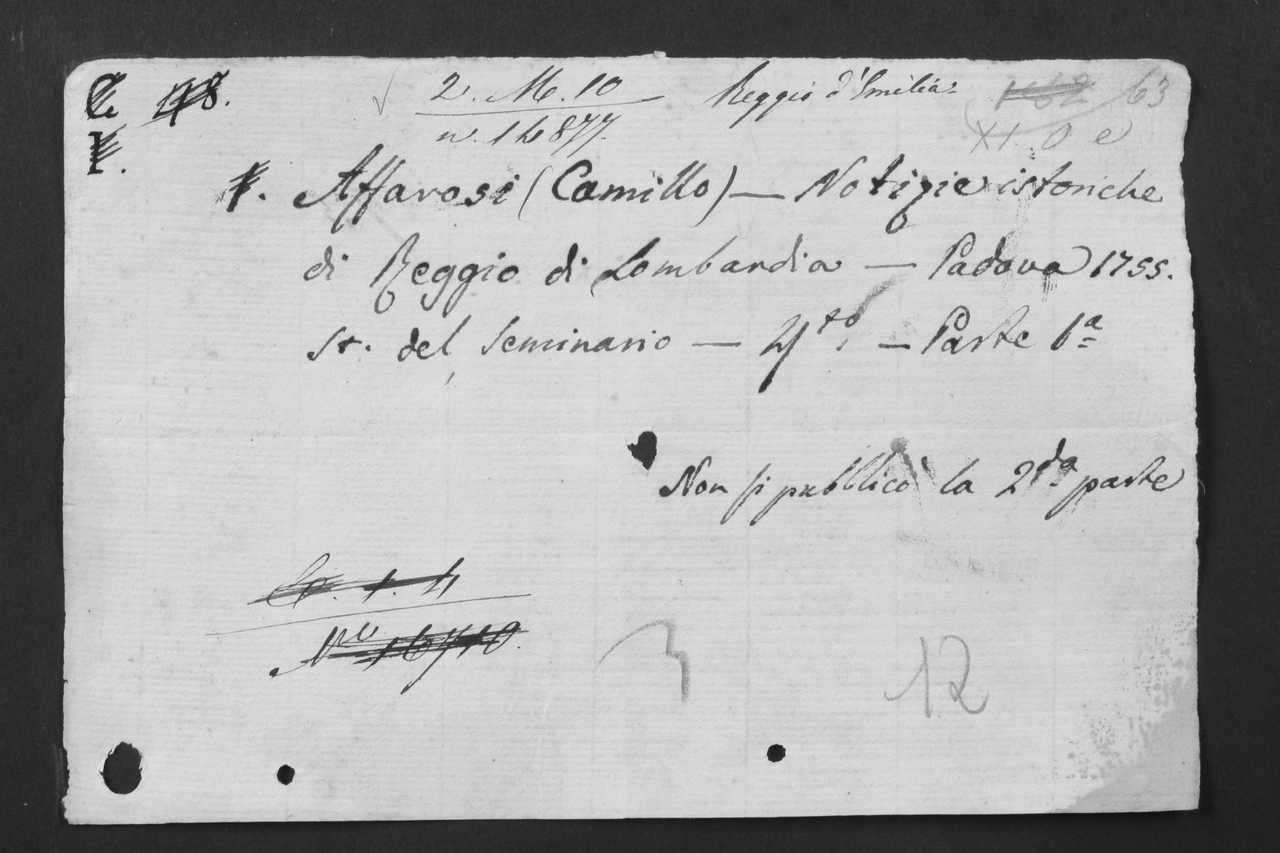 2. M. 10 Reggio d'Emilia 63
n. 14877. XI. O e
Affarosi (Camillo) — Notizie istoriche
di Reggio di Lombardia — Padova 1755.
St. del Seminario — 4to. — Parte 1a
Non si pubblicò la 2da parte
3 12